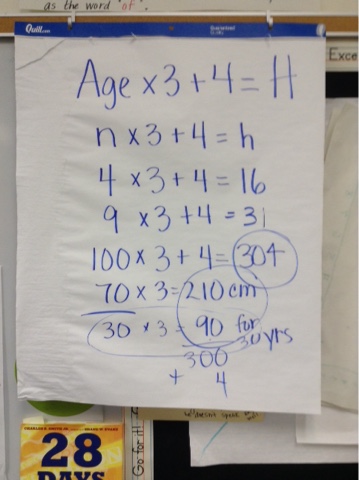 as the word of.
Quill.com
Age x 3 + 4 = H
Exce
n x 3 + 4 = h
4 x 3 + 4 = 16
9 x 3 + 4 = 31
100 x 3 + 4 = 304
70 x 3 = 210 cm
30 x 3 = 90 for
30 yrs
300
+ 4
28
DAYS
Go for it!